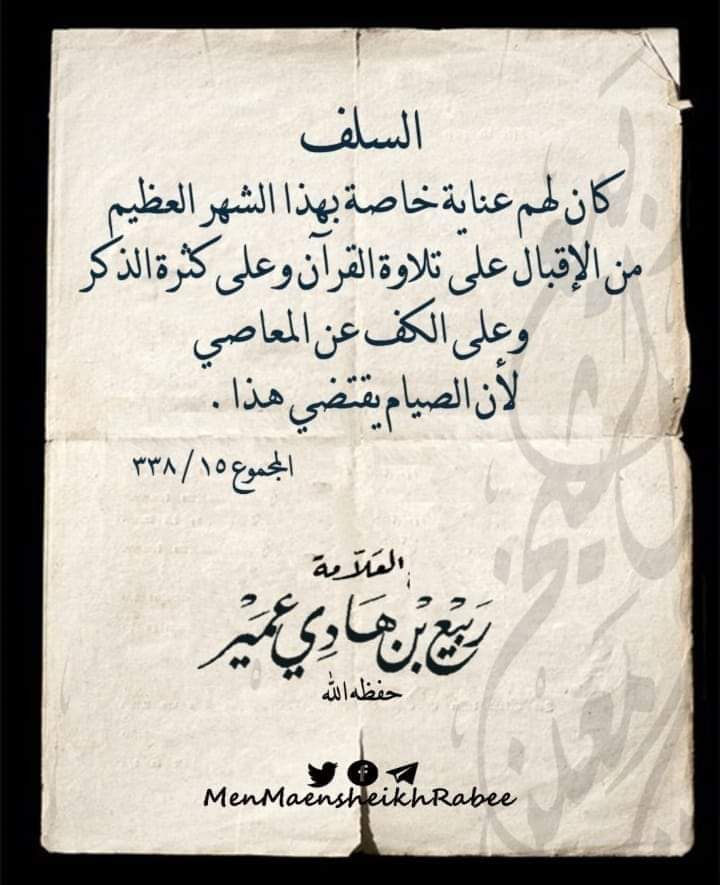 السلف
كان لهم عناية خاصة بهذا الشهر العظيم
من الإقبال على تلاوة القرآن وعلى كثرة الذكر
وعلى الكف عن المعاصي
لأن الصيام يقتضي هذا .
المجموع ١٥ / ٣٣٨
العَلاّمة
رَبِيْع بْن هَادِي عُمَيْر
حفظه الله
MenMaensheikhRabee